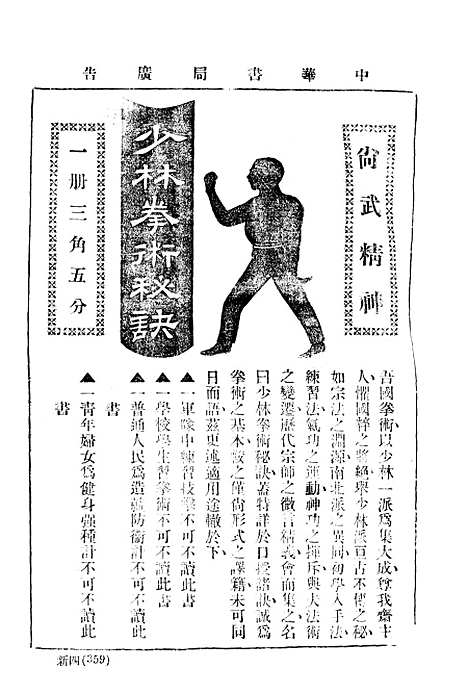 中華書局廣告
尚武精神
少林拳術秘訣
一册三角五分
吾國拳術以少林一派爲集大成尊我齋主
人懼國粹之將絕舉少林派亘古不傳之秘
如宗法之淵源南北派之異同初學入手法
練習法氣功之運動神功之揮斥與大法術
之變遷歷代宗師之微言精義會而集之名
曰少林拳術秘訣蓋特詳於口授諸訣誠爲
拳術之基本較之僅尙形式之譯籍未可同
日而語茲更述適用途轍於下
▲一軍隊中練習技擊不可不讀此書
▲一學校學生習拳術不可不讀此書
▲一普通人民爲造就防衛計不可不讀此
書
▲一靑年婦女爲健身强種計不可不讀此
書
新四(359)